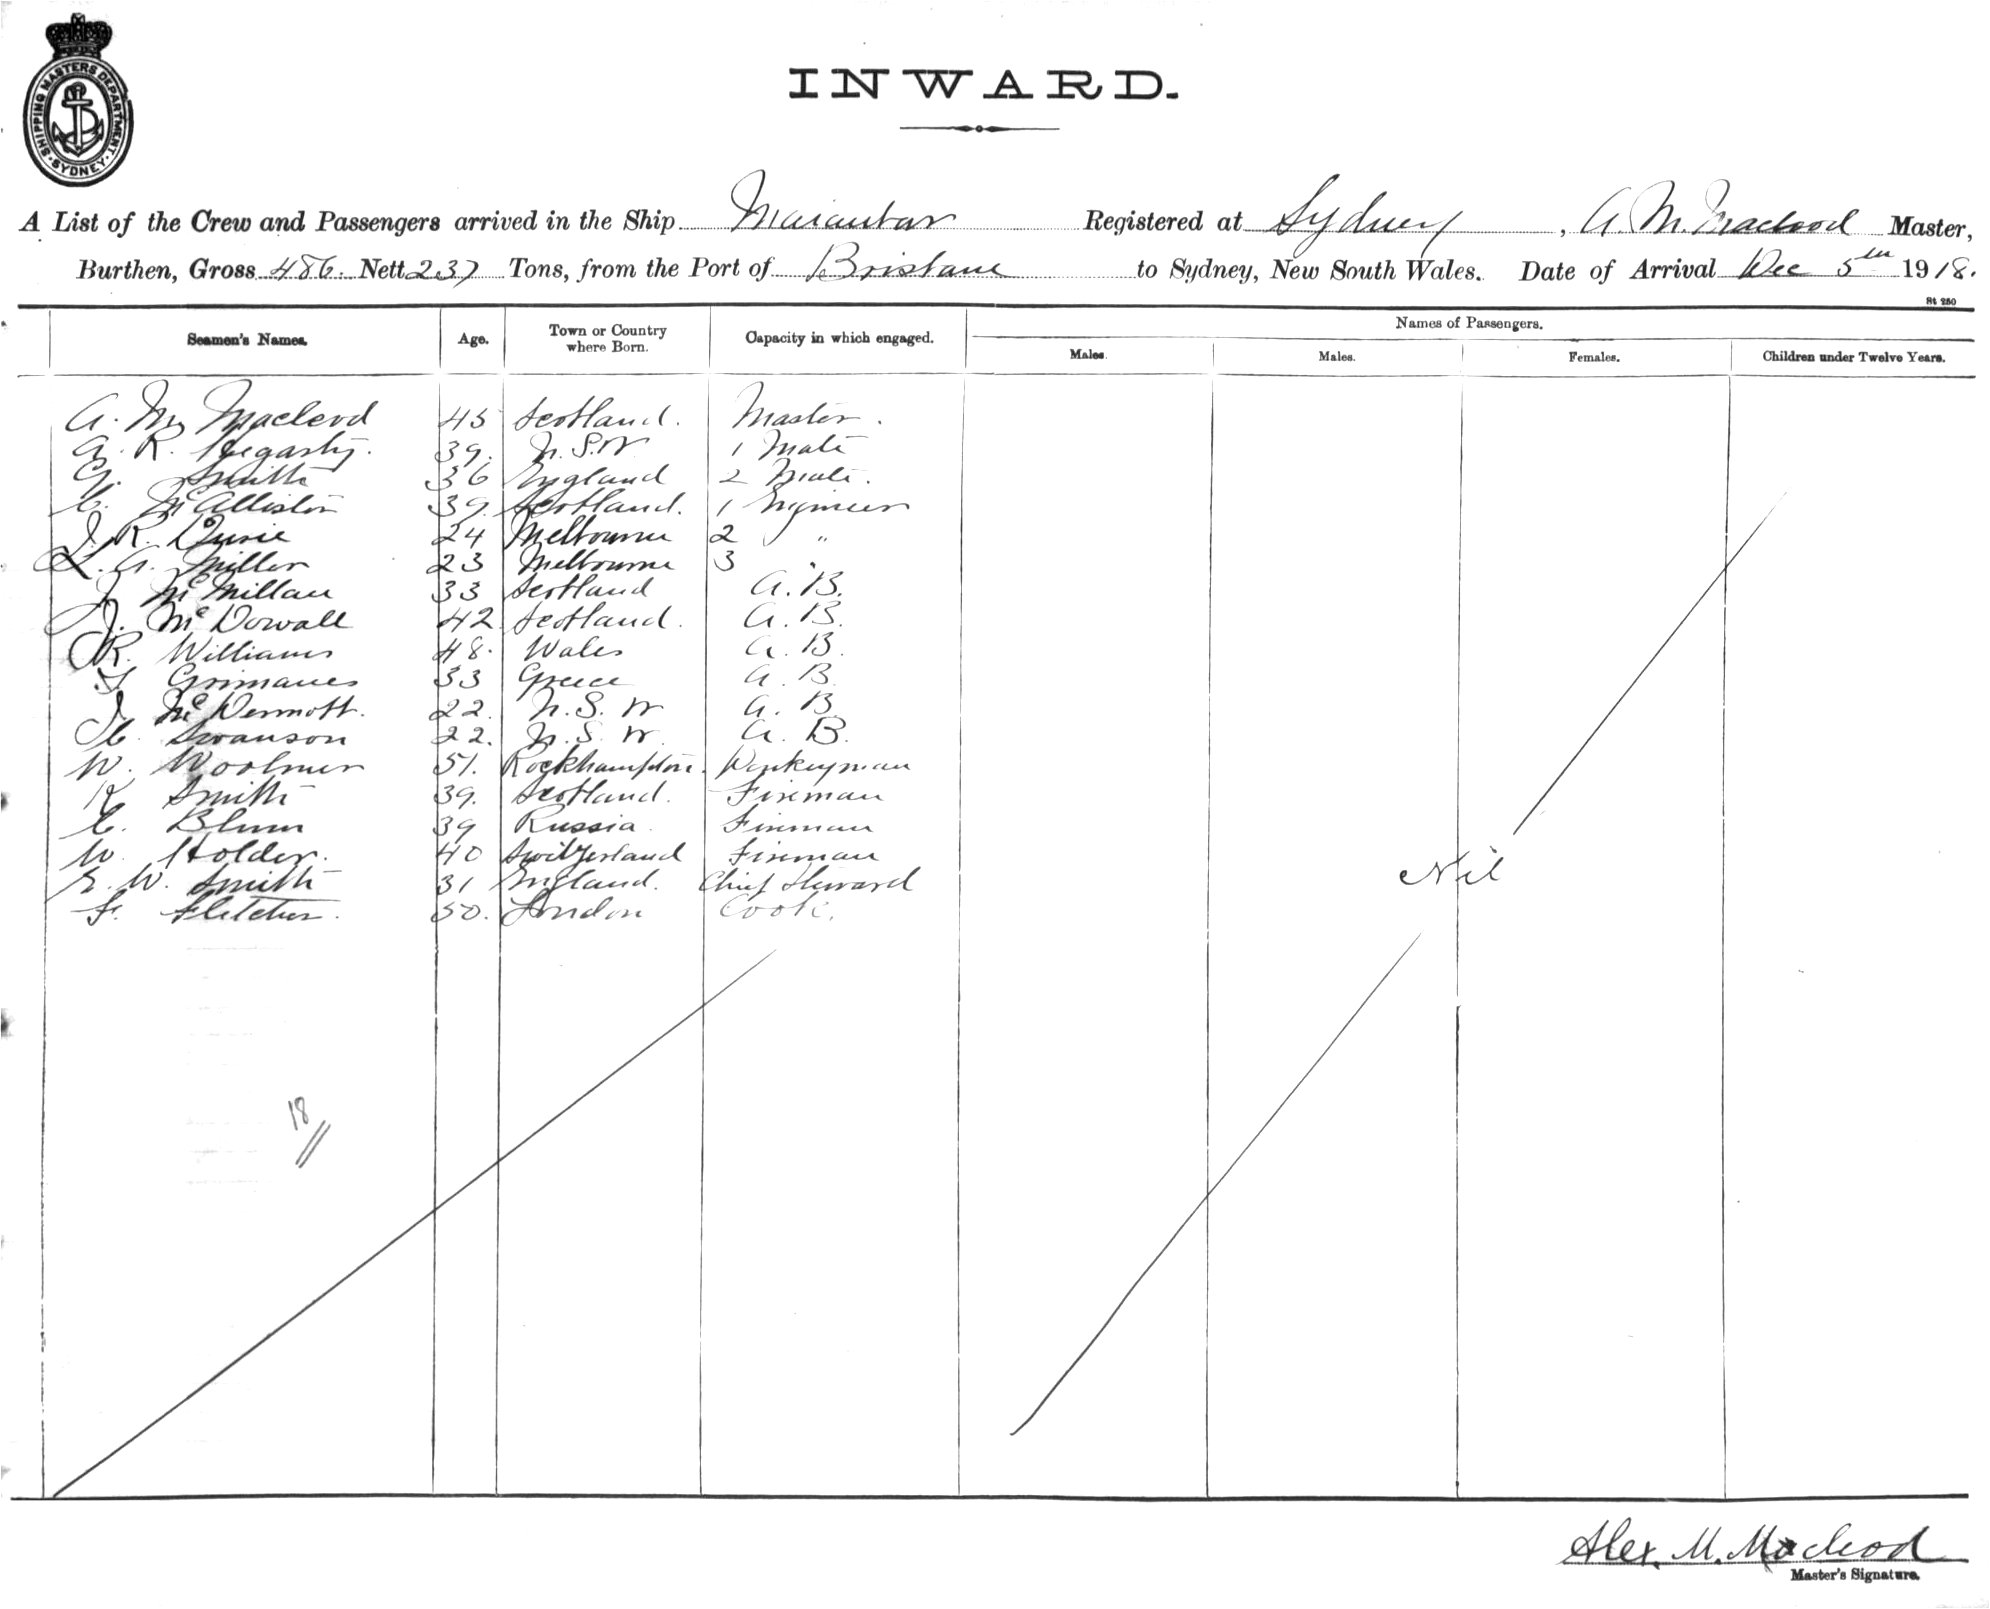 SHIPPING MASTERS DEPARTMENT · SYDNEY ·
INWARD.
A List of the Crew and Passengers arrived in the Ship Maianbar Registered at Sydney, A. M. Macleod Master,
Burthen, Gross 486. Nett 237 Tons, from the Port of Brisbane to Sydney, New South Wales. Date of Arrival Dec 5th 1918.
St 250
Seamen's Names. Age. Town or Country where Born. Capacity in which engaged. Names of Passengers.
Males. Males. Females. Children under Twelve Years.
A. M. Macleod 45 Scotland. Master.
R. Hegarty. 39. N.S.W 1 Mate
G. Smith 36 England 2 Mate.
C. McAllister 39. Scotland. 1 Engineer
J. R. Durie 24 Melbourne 2 "
L. A. Miller 23 Melbourne 3 "
J McMillan 33 Scotland A.B.
J. McDowall 42 Scotland. A.B.
R. Williams 48. Wales A.B.
Grimanes 33 Greece A.B.
J. McDermott. 22. N.S.W A.B
C. Swanson 22. N.S.W. A.B.
W. Woolmer 51. Rockhampton. Donkeyman
R Smith 39. Scotland. Fireman
C. Blum 39 Russia. Fireman
W. Holder. 40 Switzerland Fireman
E. W. Smith 31 England. Chief Steward
F. Fletcher. 50. London Cook.
Nil
18
Alex. M. Macleod
Master's Signature.